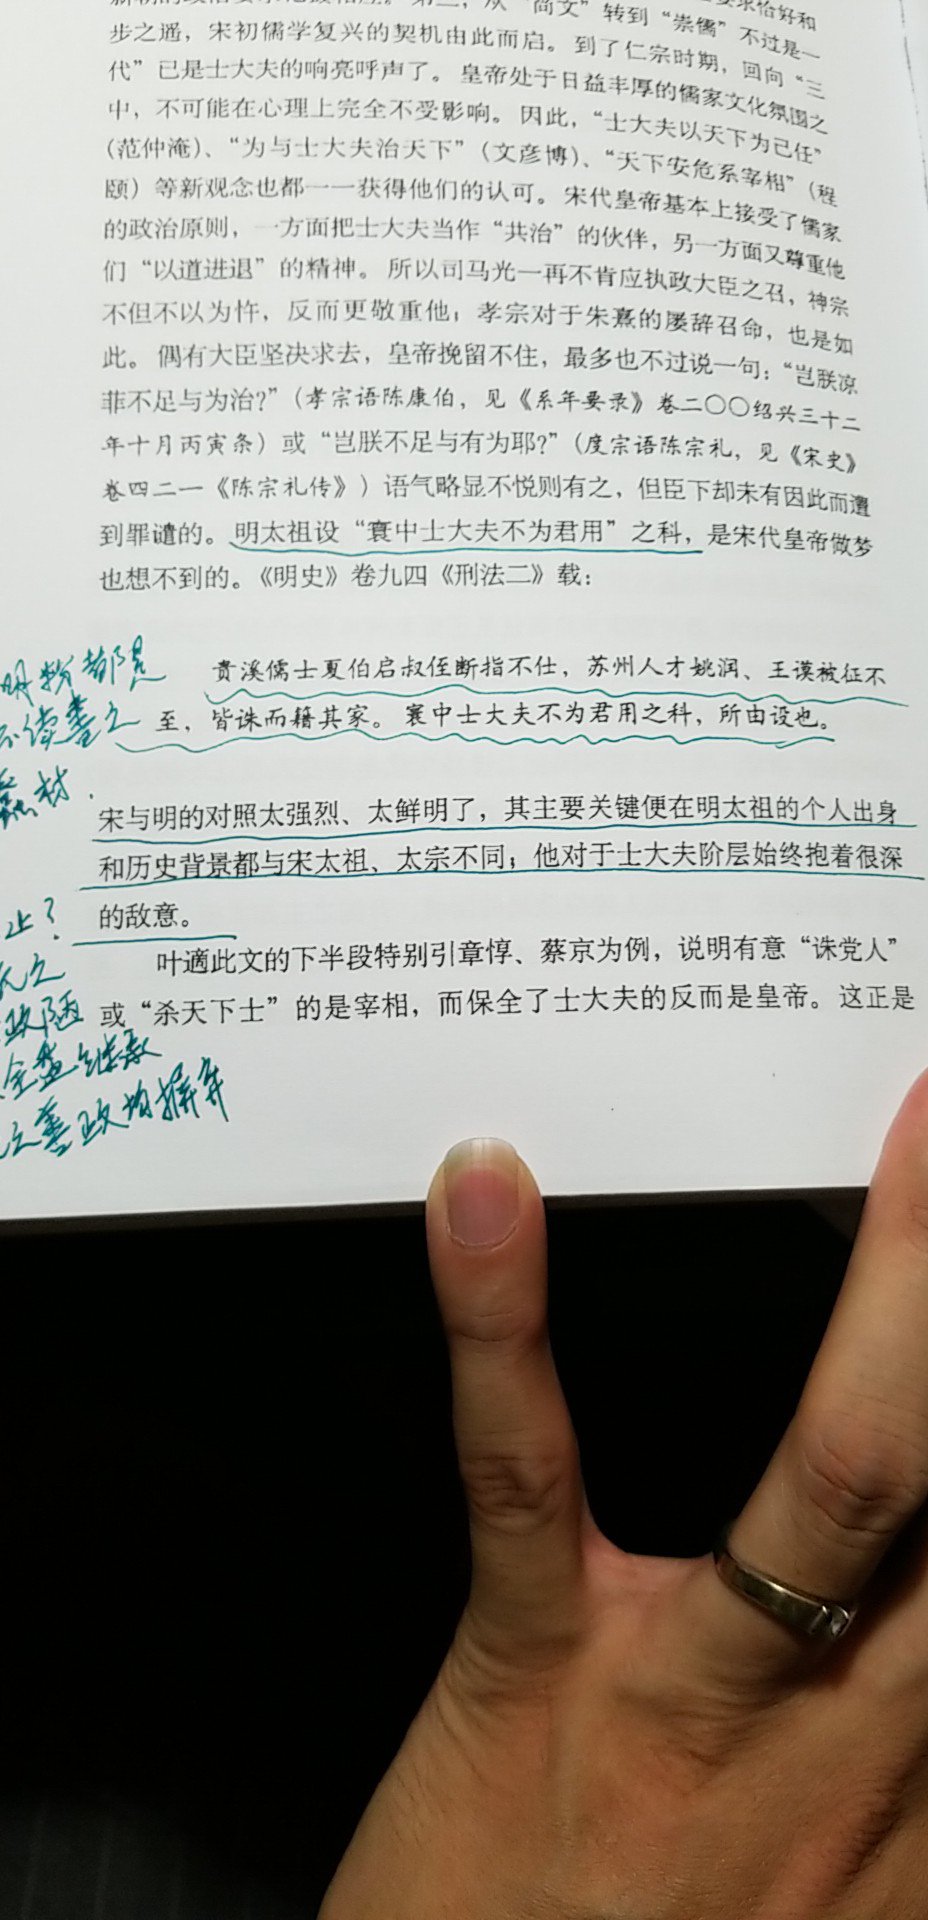 步之遥，宋初儒学复兴的契机由此而启。到了仁宗时期，回向“三
代”已是士大夫的响亮呼声了。皇帝处于日益丰厚的儒家文化氛围之
中，不可能在心理上完全不受影响。因此，“士大夫以天下为己任”
（范仲淹）、“为与士大夫治天下”（文彦博）、“天下安危系宰相”（程
颐）等新观念也都一一获得他们的认可。宋代皇帝基本上接受了儒家
的政治原则，一方面把士大夫当作“共治”的伙伴，另一方面又尊重他
们“以道进退”的精神。所以司马光一再不肯应执政大臣之召，神宗
不但不以为忤，反而更敬重他；孝宗对于朱熹的屡辞召命，也是如
此。偶有大臣坚决求去，皇帝挽留不住，最多也不过说一句：“岂朕凉
菲不足与为治？”（孝宗语陈康伯，见《系年要录》卷二〇〇绍兴三十二
年十月丙寅条）或“岂朕不足与有为耶？”（度宗语陈宗礼，见《宋史》
卷四二一《陈宗礼传》）语气略显不悦则有之，但臣下却未有因此而遭
到罪谴的。明太祖设“寰中士大夫不为君用”之科，是宋代皇帝做梦
也想不到的。《明史》卷九四《刑法二》载：
贵溪儒士夏伯启叔侄断指不仕，苏州人才姚润、王谟被征不
至，皆诛而籍其家。寰中士大夫不为君用之科，所由设也。
宋与明的对照太强烈、太鲜明了，其主要关键便在明太祖的个人出身
和历史背景都与宋太祖、太宗不同；他对于士大夫阶层始终抱着很深
的敌意。
叶適此文的下半段特别引章惇、蔡京为例，说明有意“诛党人”
或“杀天下士”的是宰相，而保全了士大夫的反而是皇帝。这正是
明粉都是
不读书之
蠢材.
止？
之
政陋
全盘继承
之善政均摒弃